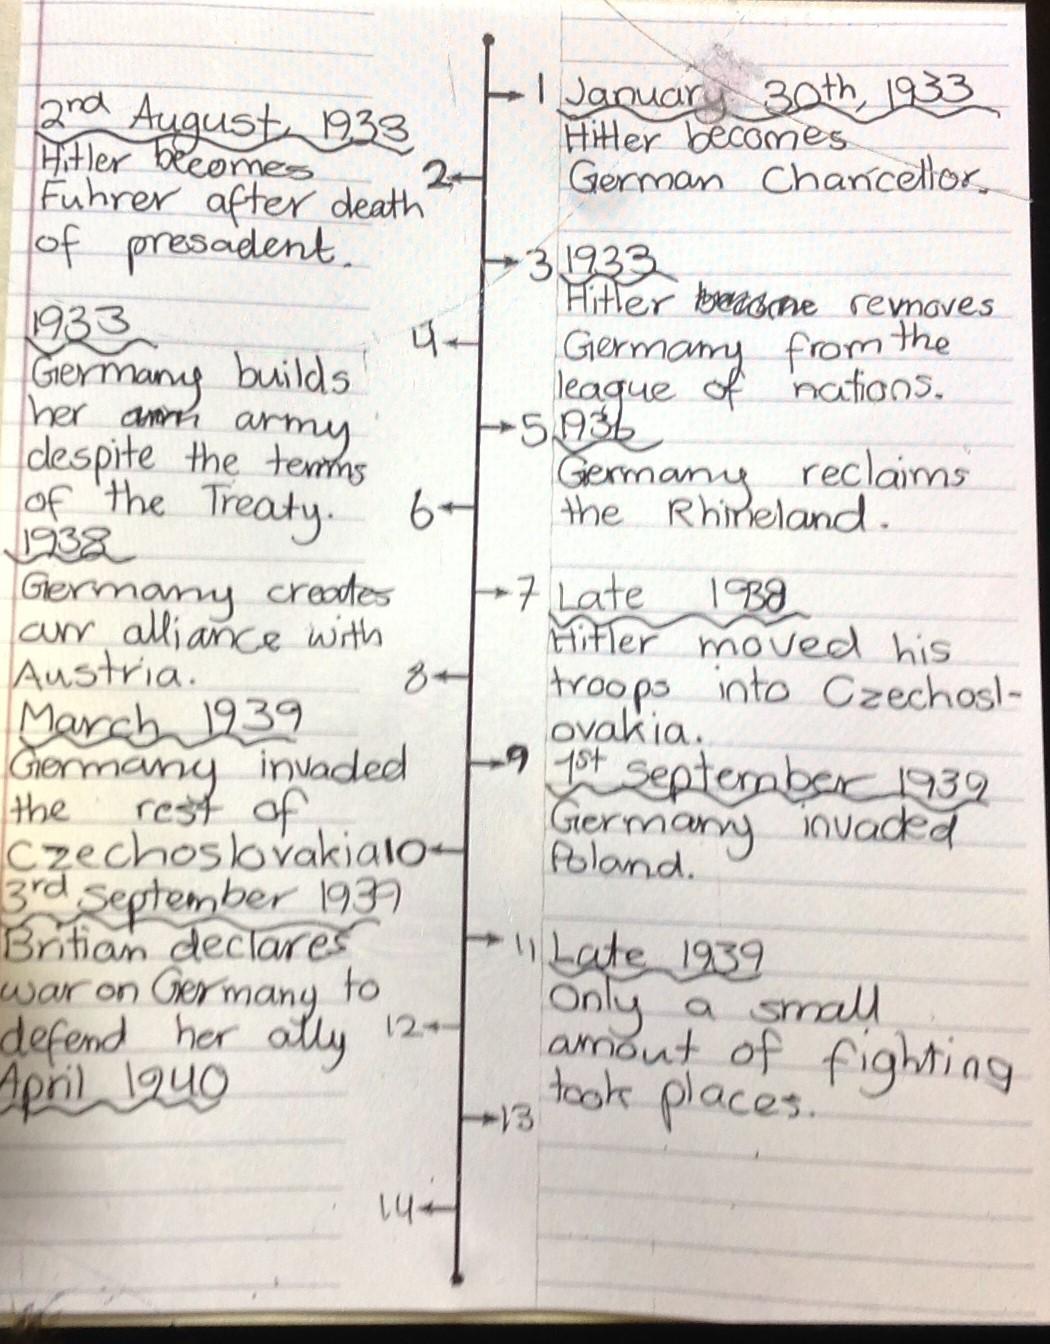 1 January 30th, 1933
Hitler becomes
German Chancellor.
2nd August, 1933
Hitler becomes
2
Fuhrer after death
of presadent.
3 1933
Hitler removes
Germany from the
league of nations.
1933
4
Germany builds
her army
despite the terms
of the Treaty.
5 1936
Germany reclaims
the Rhineland.
6
1938
Germany creates
an alliance with
Austria.
7 Late 1938
Hitler moved his
troops into Czechosl-
ovakia.
8
March 1939
Germany invaded
the rest of
Czechoslovakia
9 1st September 1939
Germany invaded
Poland.
10
3rd September 1939
Britian declares
war on Germany to
defend her ally
11 Late 1939
Only a small
amout of fighting
took places.
12
April 1940
13
14